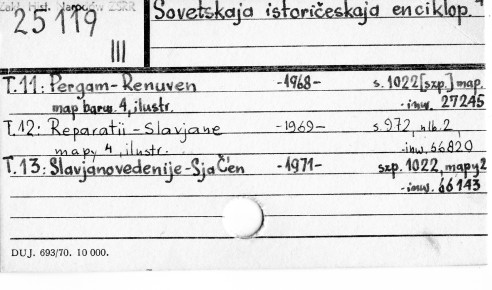 Zakł. Hist. Narodów ZSRR
Sovetskaja istoričeskaja enciklop.
25 119
III
T.11: Pergam-Renuven -1968- s.1022[szp.] map.
map barw. 4, ilustr. -inw. 27245
T.12: Reparatii-Slavjane -1969- s.972, nlb.2,
mapy 4, ilustr. -inw. 66820
T.13: Slavjanovedenije-Sja Č'en -1971- szp. 1022, mapy 2
-inw. 66143
DUJ. 693/70. 10 000.